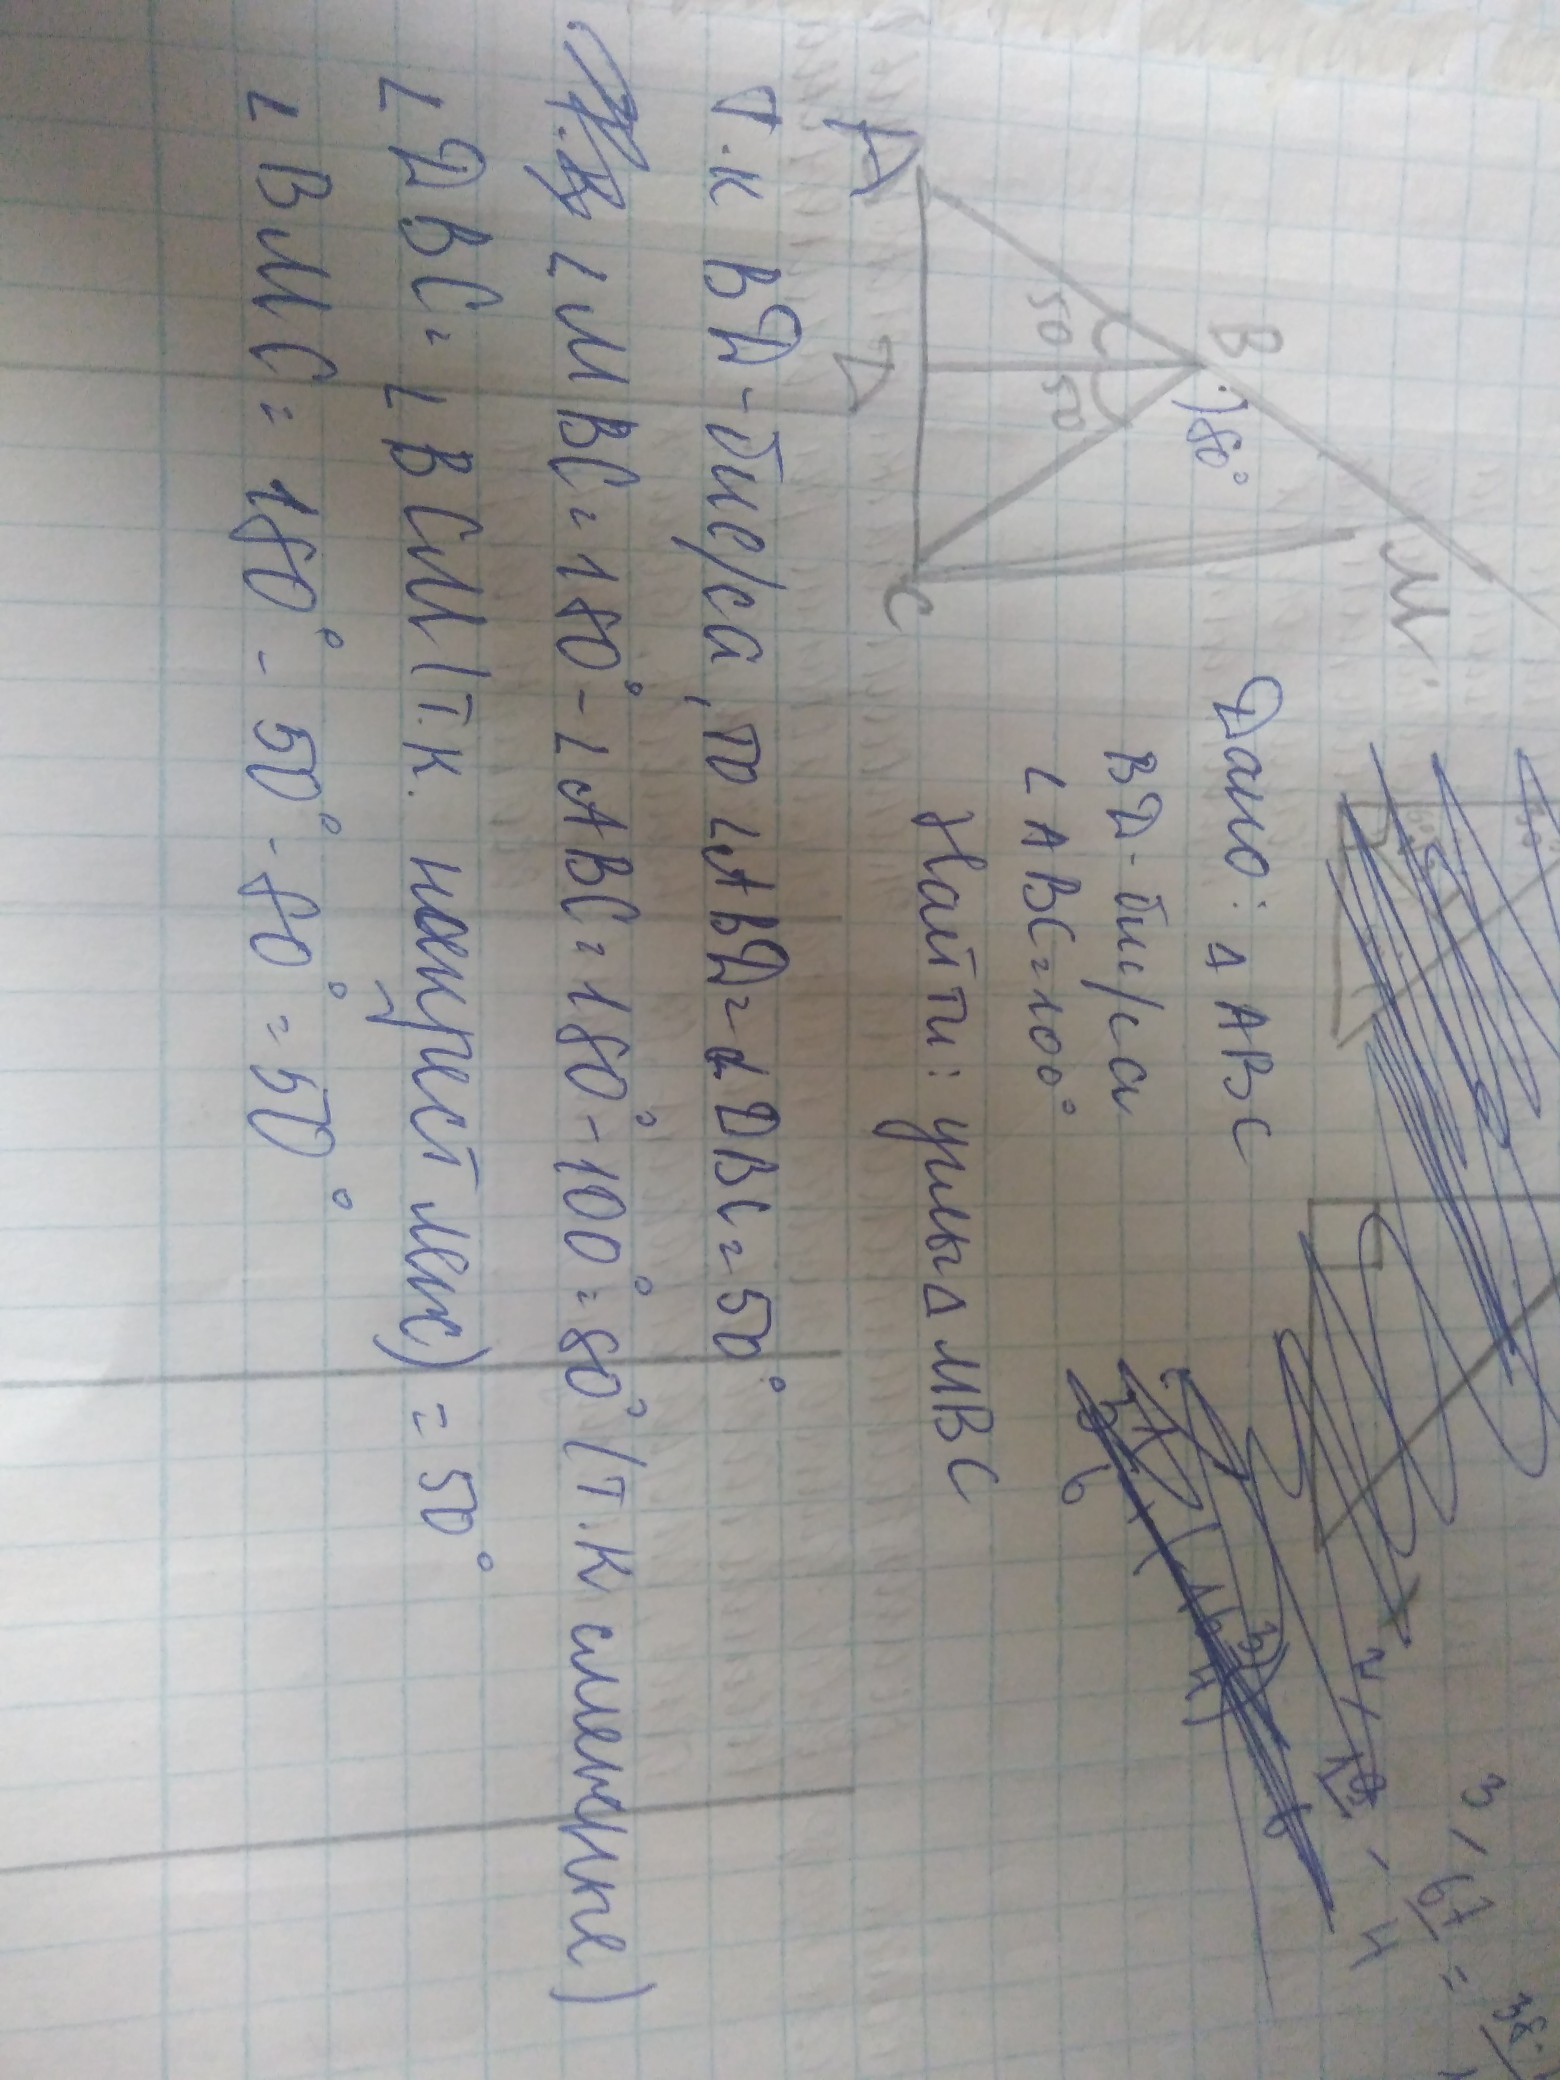 B
M
80°
50
50
A
D
C
Дано: Δ ABC
BD - бис/са
∠ ABC = 100°
Найти: углы Δ MBC
Т.к BD - бис/са, то ∠ABD = ∠DBC = 50°
∠MBC = 180° - ∠ABC = 180° - 100° = 80° (т.к смежные)
∠DBC = ∠BCM (т.к. накрест леж) = 50°
∠BMC = 180° - 50° - 80° = 50°